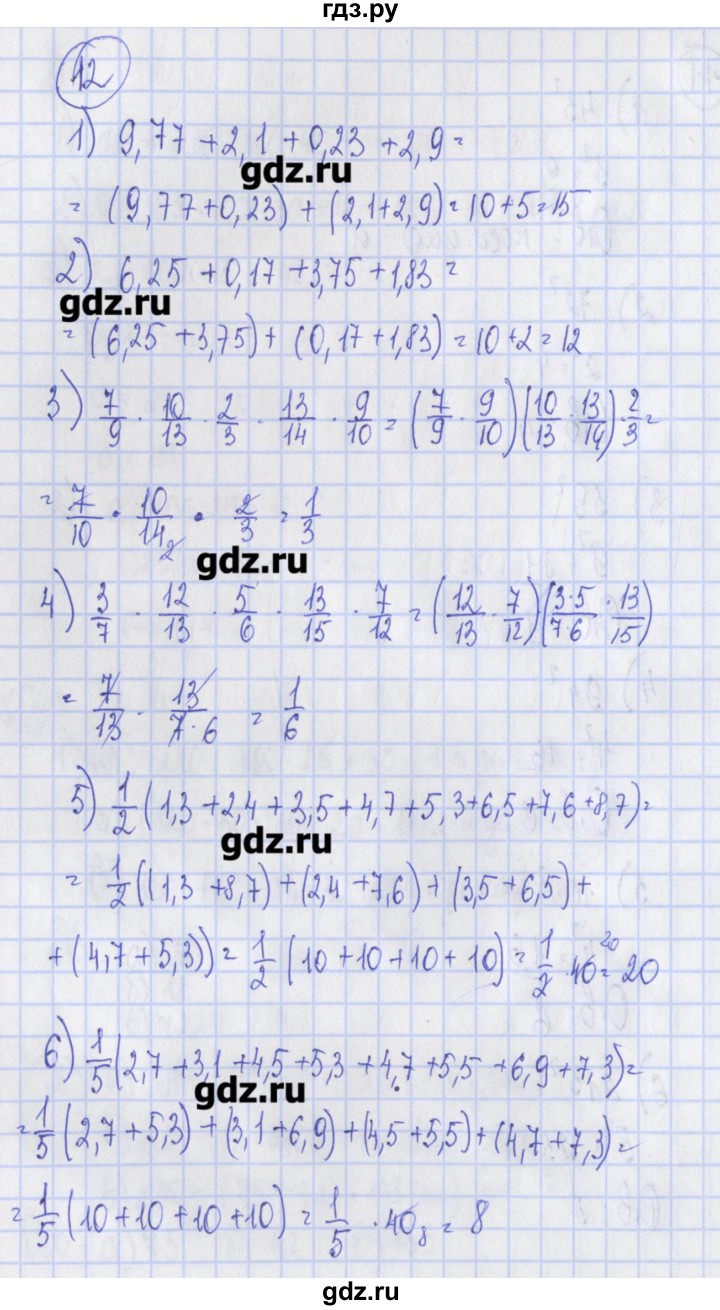 гдз.ру
12
1) 9,77 + 2,1 + 0,23 + 2,9 =
gdz.ru
= (9,77 + 0,23) + (2,1 + 2,9) = 10 + 5 = 15
2) 6,25 + 0,17 + 3,75 + 1,83 =
gdz.ru
= (6,25 + 3,75) + (0,17 + 1,83) = 10 + 2 = 12
3) 7/9 · 10/13 · 2/3 · 13/14 · 9/10 = (7/9 · 9/10)(10/13 · 13/14) · 2/3 =
= 7/10 · 10/14 2 · 2/3 = 1/3
gdz.ru
4) 3/7 · 12/13 · 5/6 · 13/15 · 7/12 = (12/13 · 7/12)(3·5/7·6 · 13/15)
= 7/13 · 13/7·6 = 1/6
5) 1/2 (1,3 + 2,4 + 3,5 + 4,7 + 5,3 + 6,5 + 7,6 + 8,7) =
gdz.ru
= 1/2 ((1,3 + 8,7) + (2,4 + 7,6) + (3,5 + 6,5) +
+ (4,7 + 5,3)) = 1/2 (10 + 10 + 10 + 10) = 1/2 · 40 20 = 20
6) 1/5 (2,7 + 3,1 + 4,5 + 5,3 + 4,7 + 5,5 + 6,9 + 7,3) =
gdz.ru
= 1/5 (2,7 + 5,3) + (3,1 + 6,9) + (4,5 + 5,5) + (4,7 + 7,3) =
= 1/5 (10 + 10 + 10 + 10) = 1/5 · 40 8 = 8
gdz.ru